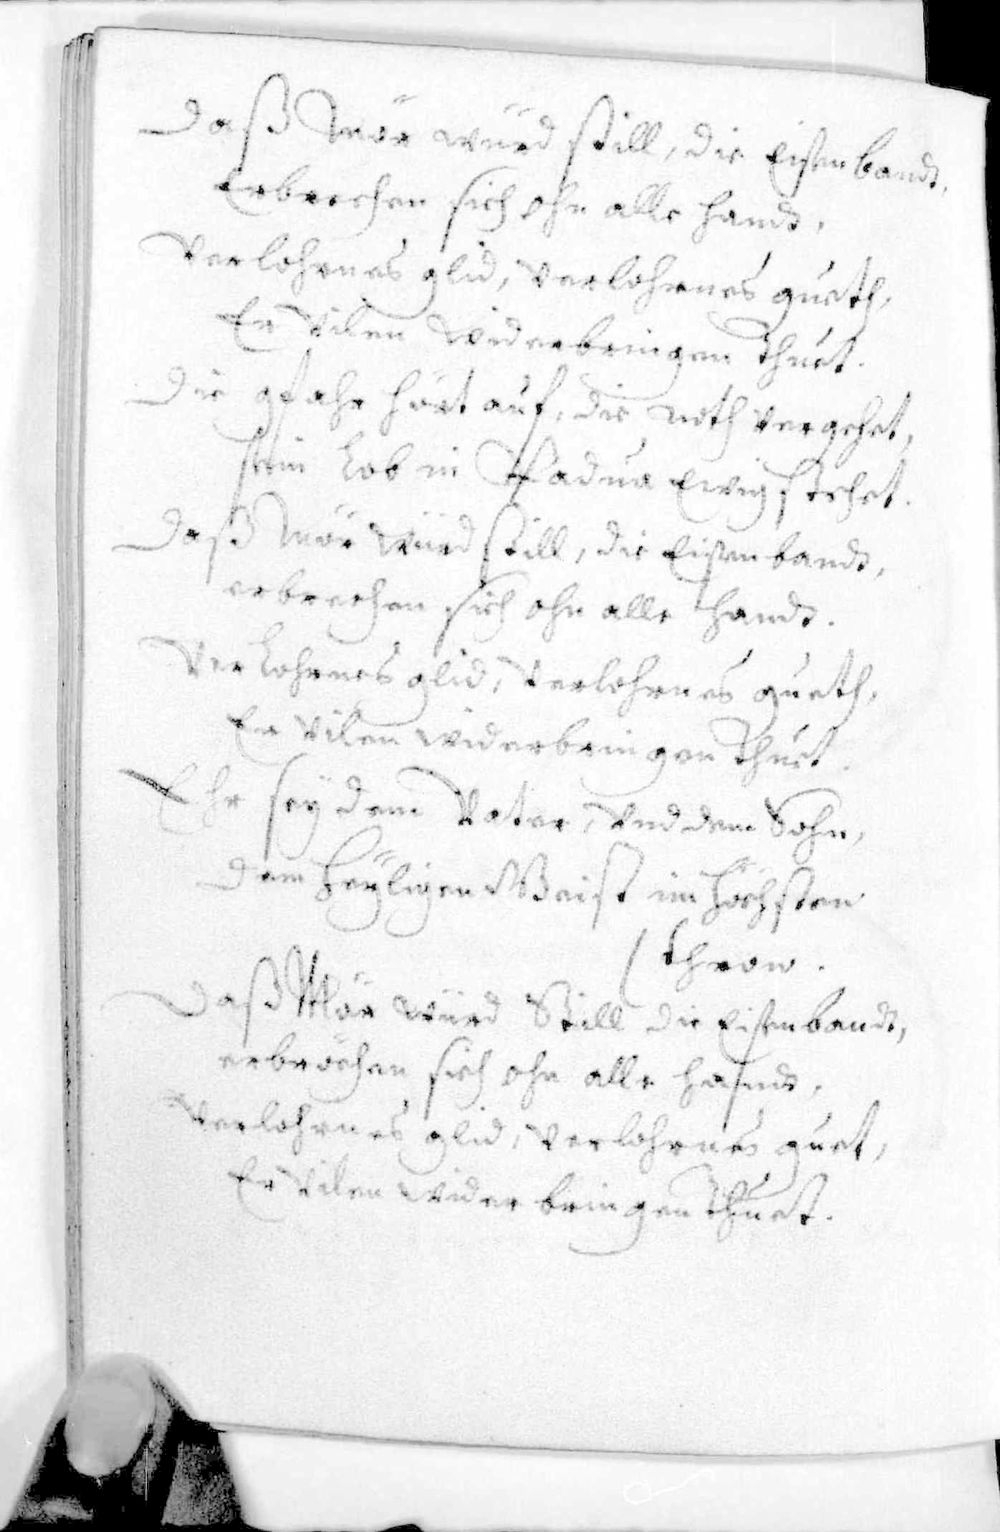 Daß Mör würd still, die Eisen bandt,
Erbrechen sich ohn alle handt,
Verlohrnes glid, Verlohrnes gueth,
Er Vilen Widerbringen Thuet.
Die gfahr hört auf, die noth Vergehet,
sein Lob in Padua Ewig stehet.
Daß Mör Würd still, die Eisen bandt,
erbrechen sich ohn alle handt.
Verlohrnes glid, Verlohrnes gueth,
Er Vilen widerbringen Thuet.
Ehr seÿ dem Vater, Vnd dem Sohn,
Dem Heÿligen Gaist im höchsten
(thron.
Daß Mör würd Still die Eisen bandt,
erbröchen sich ohn alle handt,
Verlohrnes glid, Verlohrnes guet,
Er Vilen wider bringen Thuet.